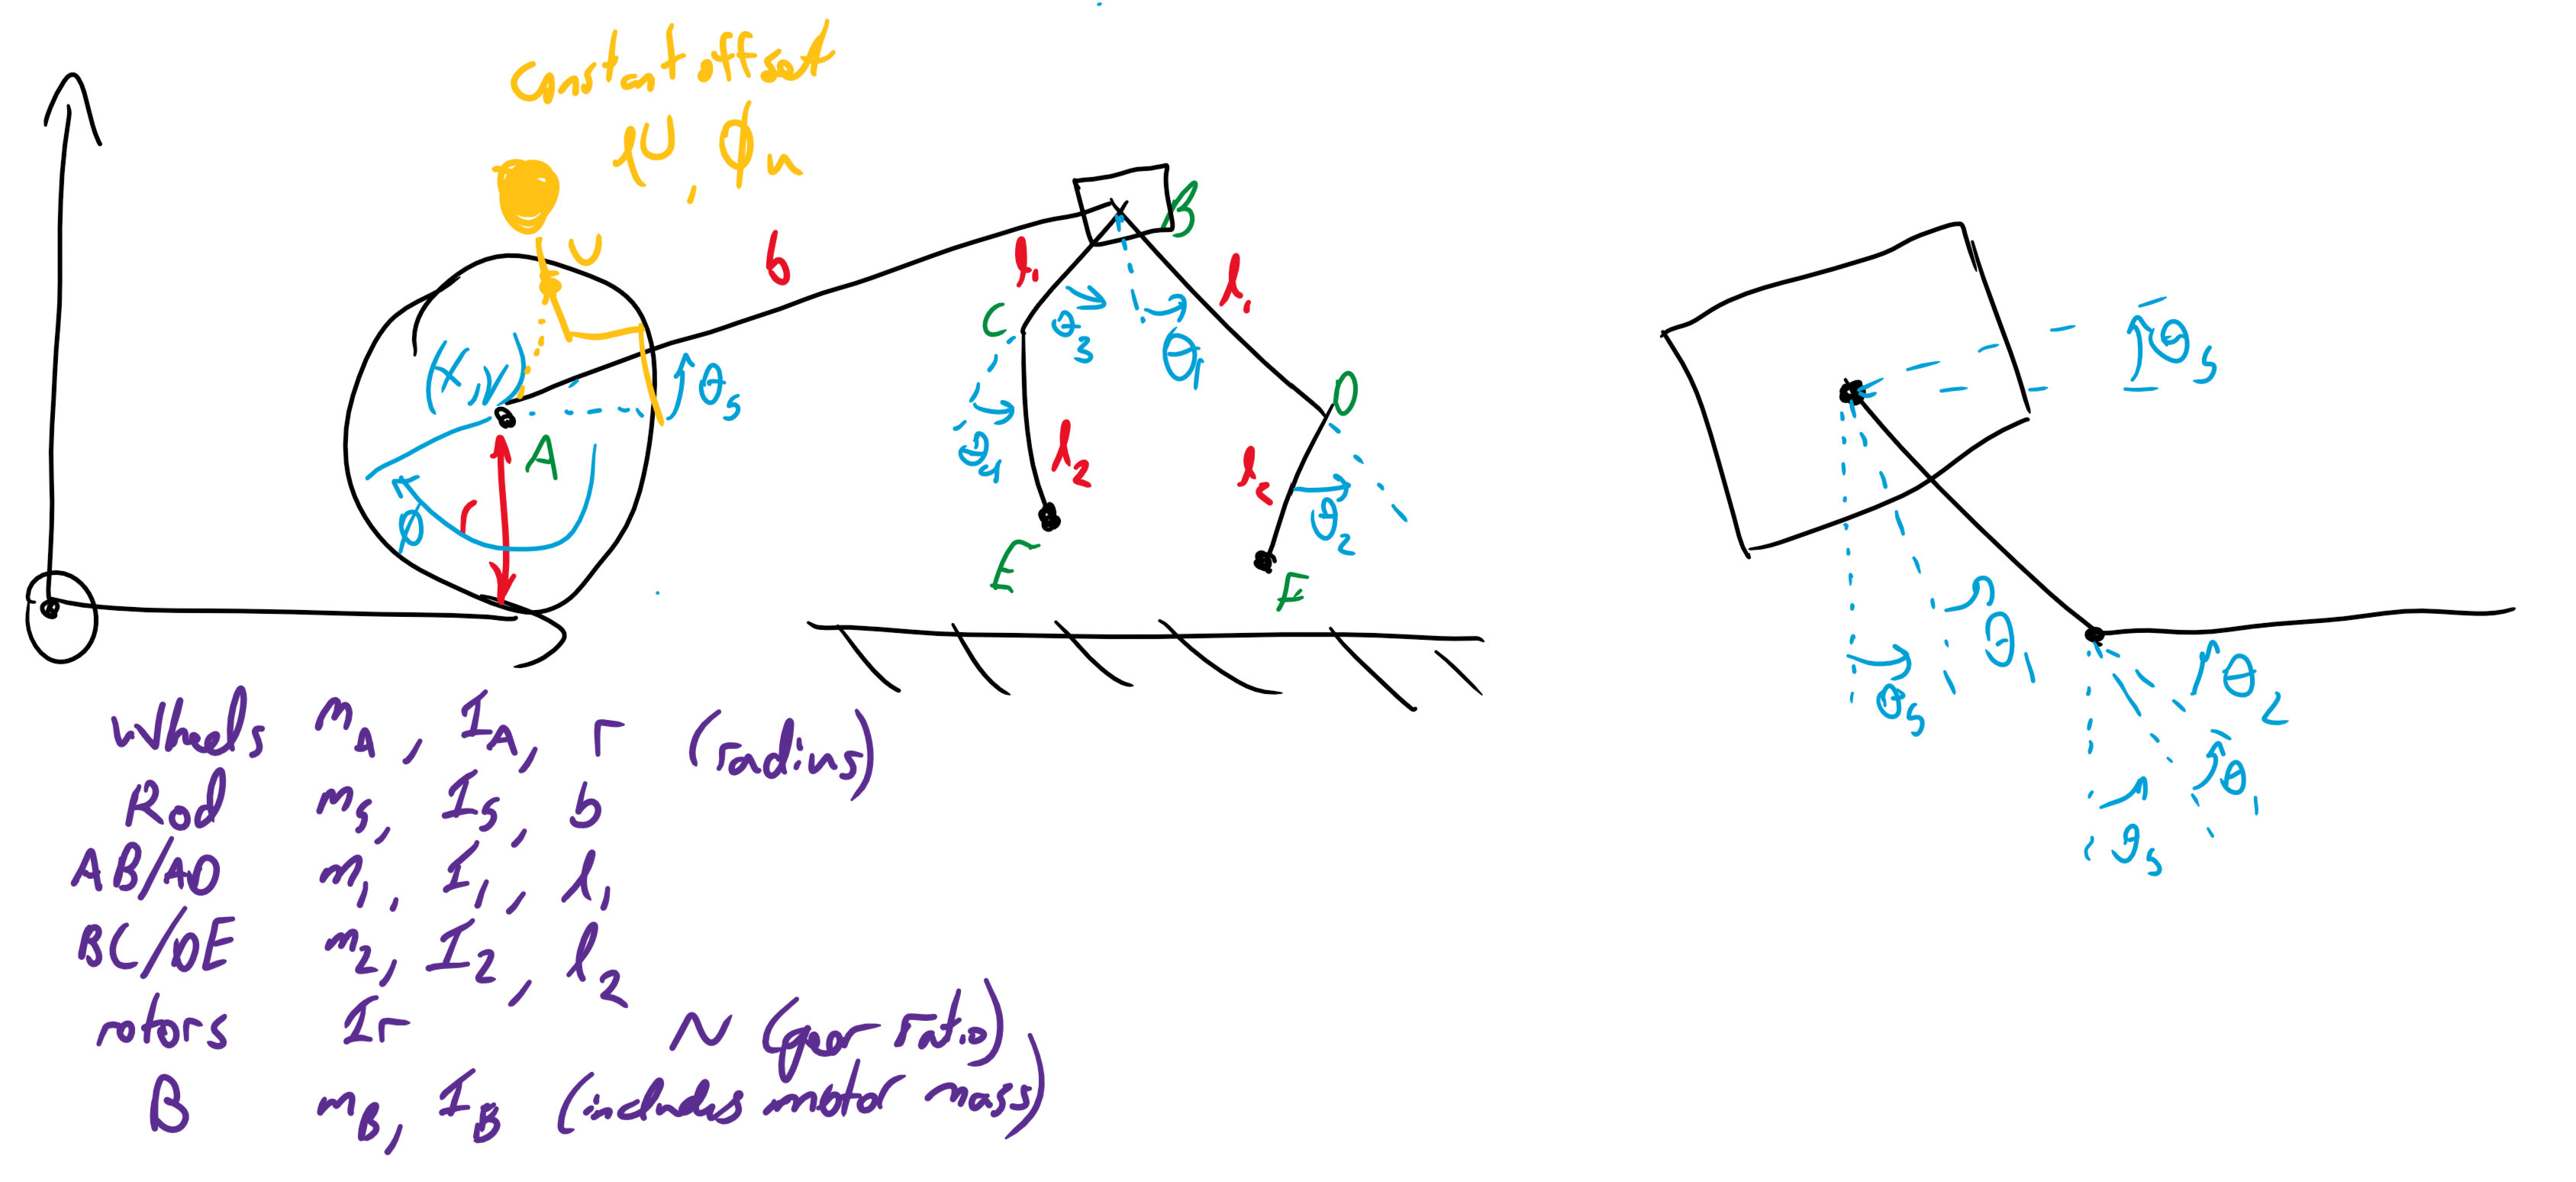 constant offset
lU, ϕn
U
B
b
l1
l1
C
θ3
θ1
(x,y)
θ5
D
A
θ4
l2
l2
θ2
ϕ
r
E
F
θ5
θ1
θ5
θ2
θ1
θ5
Wheels mA, IA, r (radius)
Rod m5, I5, b
AB/AD m1, I1, l1
BC/DE m2, I2, l2
rotors Ir N (gear ratio)
B mB, IB (includes motor mass)